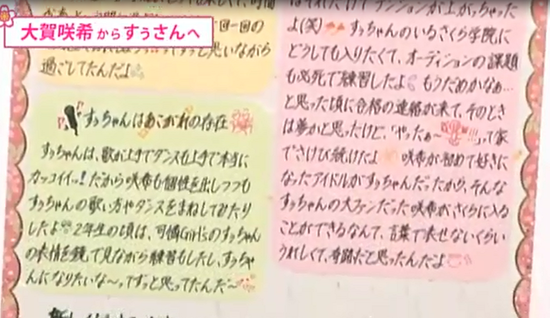 大賀咲希からすぅさんへ
と思いながら
過ごしてたんだよ
すっちゃんはあこがれの存在
すっちゃんは、歌が上手でダンスも上手で本当に
カッコイイッ!だから咲希も個性を出しつつも
すっちゃんの歌い方やダンスをまねしてみたり
したよ 2年生の頃は、可憐Girl'sのすっちゃん
の表情を鏡で見ながら練習もしたし、すっちゃ
んになりたいな~ってずっと思ってたんだ~
よ(笑) すっちゃんのいるさくら学院に
どうしても入りたくて、オーディションの課題
も必死で練習したよ もうだめかなぁ…
と思った頃に合格の連絡が来て、そのとき
は夢かと思ったけど、"やったぁ~ !!!って家
でさけび続けたよ 咲希が初めて好きに
なったアイドルがすっちゃんだったから、そんな
すっちゃんの大ファンだった咲希がさくらに入る
ことができるなんて、言葉で表せないくらい
うれしくて、奇跡だと思ったんだよ